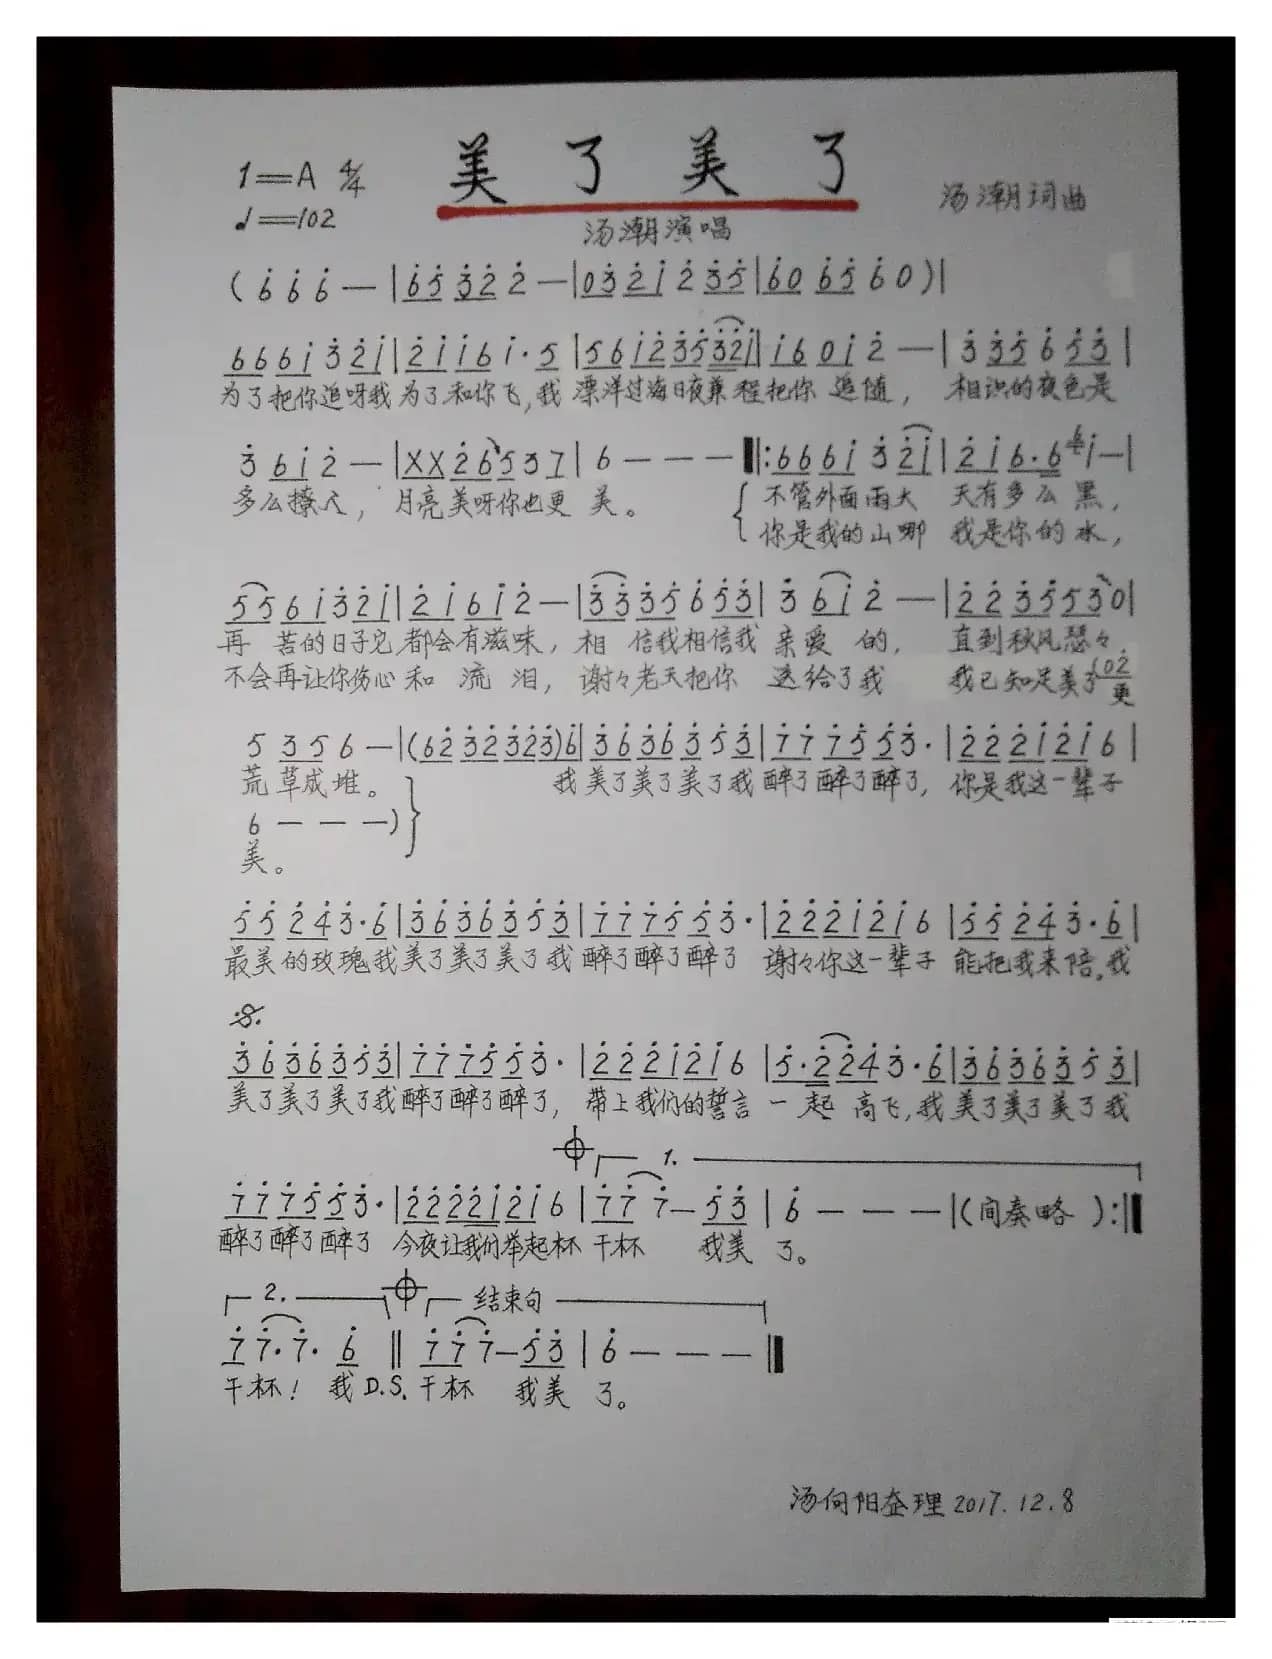 1=A 4/4
美了美了
♩=102
汤潮词曲
汤潮演唱
(6 6 6 — |65 32 2 —|03 21 2 35|60 65 60)|
666i 3 21|21 16 1·5|56 12 35 321|16 01 2 —|3 35 6 53|
为了把你追呀我为了和你飞,我 漂洋过海日夜兼程把你追随, 相识的夜色是
3 61 2 —|XX 26 537|6 — — —‖:666i 3 21|216·6 i—|
多么撩人, 月亮美呀你也更美。 不管外面雨大 天有多么黑,
你是我的山哪 我是你的水,
55 61 32 1|21 61 2 —|33 35 6 53|3 61 2 —|22 35 53 0|
再 苦的日子它都会有滋味, 相 信我相信我亲爱的, 直到秋风瑟々
不会再让你伤心和流泪, 谢々老天把你送给了我 我已知足美了(02
更
5 35 6 —|(62 32 323)6|36 36 3 53|77 75 53·|22 21 21 6|
荒草成堆。 我美了美了美了我醉了醉了醉了, 你是我这一辈子
6 — — —)
美。
55 24 3·6|36 36 3 53|77 75 53·|22 21 21 6|55 24 3·6|
最美的玫瑰我美了美了美了我醉了醉了醉了 谢々你这一辈子能把我来陪,我
36 36 3 53|77 75 53·|22 21 21 6|5·2 24 3·6|36 36 3 53|
美了美了美了我醉了醉了醉了, 带上我们的誓言一起高飞,我美了美了美了我
1.
77 75 53·|22 22 1 21 6|77 7— 53|6 — — —|(间奏略):‖
醉了醉了醉了 今夜让我们举起杯干杯 我美了。
2. 结束句
7 7·7· 6‖77 7— 53|6 — — —‖
干杯! 我D.S.干杯 我美了。
汤向阳整理2017.12.8